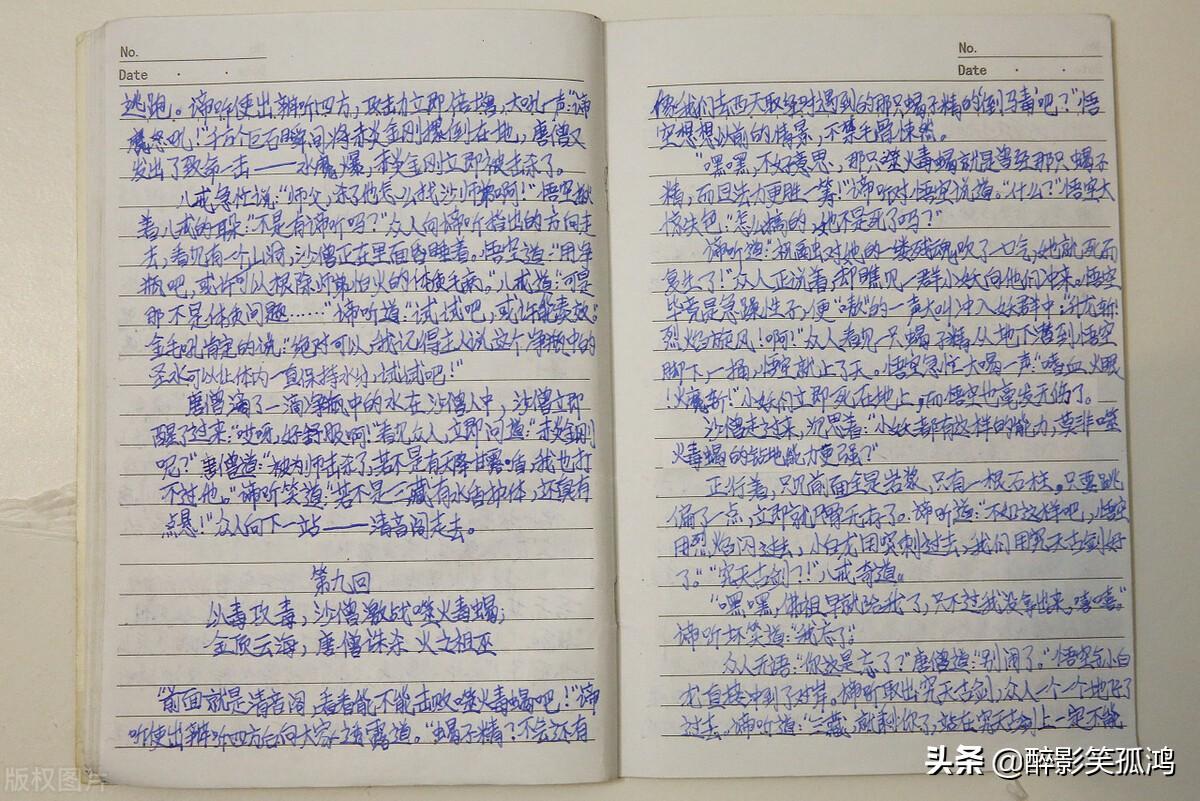 No.
Date
逃跑。谛听使出辨听四方，攻击力立即倍增，大吼一声：“谛
听怒吼！”千万个巨石瞬间将赤炎金刚撂倒在地，唐僧又
发出了致命一击——水魔爆，赤炎金刚立即被击杀了。
八戒急忙说：“师父，杀了他怎么找沙师弟啊！”悟空揪
着八戒的耳朵：“不是有谛听吗？”众人向谛听指出的方向走
去，看见有一个山洞，沙僧正在里面昏睡着。悟空道：“用净
瓶吧，或许可以根除师弟怕火的体质毛病。”八戒道：“可是
那不是体质问题……”谛听道：“试试吧，或许能奏效。”
金毛吼肯定的说：“绝对可以，我记得主人说这个净瓶中的
圣水可以让体内一直保持水分，试试吧！”
唐僧滴了一滴净瓶中的水在沙僧人中，沙僧立即
醒了过来：“哎呀，好舒服啊！”看见众人，立即问道：“赤炎金刚
呢？”唐僧道：“被为师击杀了，若不是有天降甘露盾，我也打
不过他。”谛听笑道：“若不是三藏有水的神体，还真有
点悬！”众人向下一站——清音阁走去。
第九回
以毒攻毒，沙僧激战噬火毒蝎；
金顶云海，唐僧诛杀火之祖巫
“前面就是清音阁，看看能不能击败噬火毒蝎吧！”谛
听使出辨听四方后向大家透露道。“蝎子精？不会还有
No.
Date
像我们去西天取经时遇到的那只蝎子精的‘倒马毒’吧？”悟
空想想以前的情景，不禁毛骨悚然。
“嘿嘿，不好意思，那只噬火毒蝎就是曾经那只蝎子
精，而且法力更胜一筹！”谛听对悟空说道。“什么？”悟空大
惊失色：“怎么搞的，她不是死了吗？”
谛听道：“祖巫对她的一缕残魂吹了一口气，她就死而
复生了！”众人正说着，却瞧见一群小妖向他们冲来。悟空
毕竟是急躁性子，便“嗷”的一声大叫冲入妖群中：“升龙斩！
烈焰旋风！啊？”众人看见一只蝎子精从地下遁到悟空
脚下，一捅，悟空就上了天。悟空急忙大喝一声：“嗜血火眼
！火魔斩！”小妖们立即死在地上，而悟空也毫发无伤了。
沙僧走过来，沉思着：“小妖都有这样的能力，莫非噬
火毒蝎的钻地能力更强？”
正行着，只见前面全是岩浆，只有一根石柱。只要跳
偏了一点，立即就尸骨无存了。谛听道：“不如这样吧，悟空
用烈焰闪过去，小白龙用突刺过去，我们用究天古剑好
了。”“究天古剑？！”八戒奇道。
“嘿嘿，佛祖早就给我了，只不过我没拿出来，嘻嘻。”
谛听坏笑道：“我忘了。”
众人无语：“你这是忘了？”唐僧道：“别闹了。”悟空与小白
龙直接冲到了对岸。谛听取出究天古剑，众人一个一个地
过去。谛听道：“三藏，就剩你了，站在究天古剑上一定不能
版权图片
头条 @醉影笑孤鸿